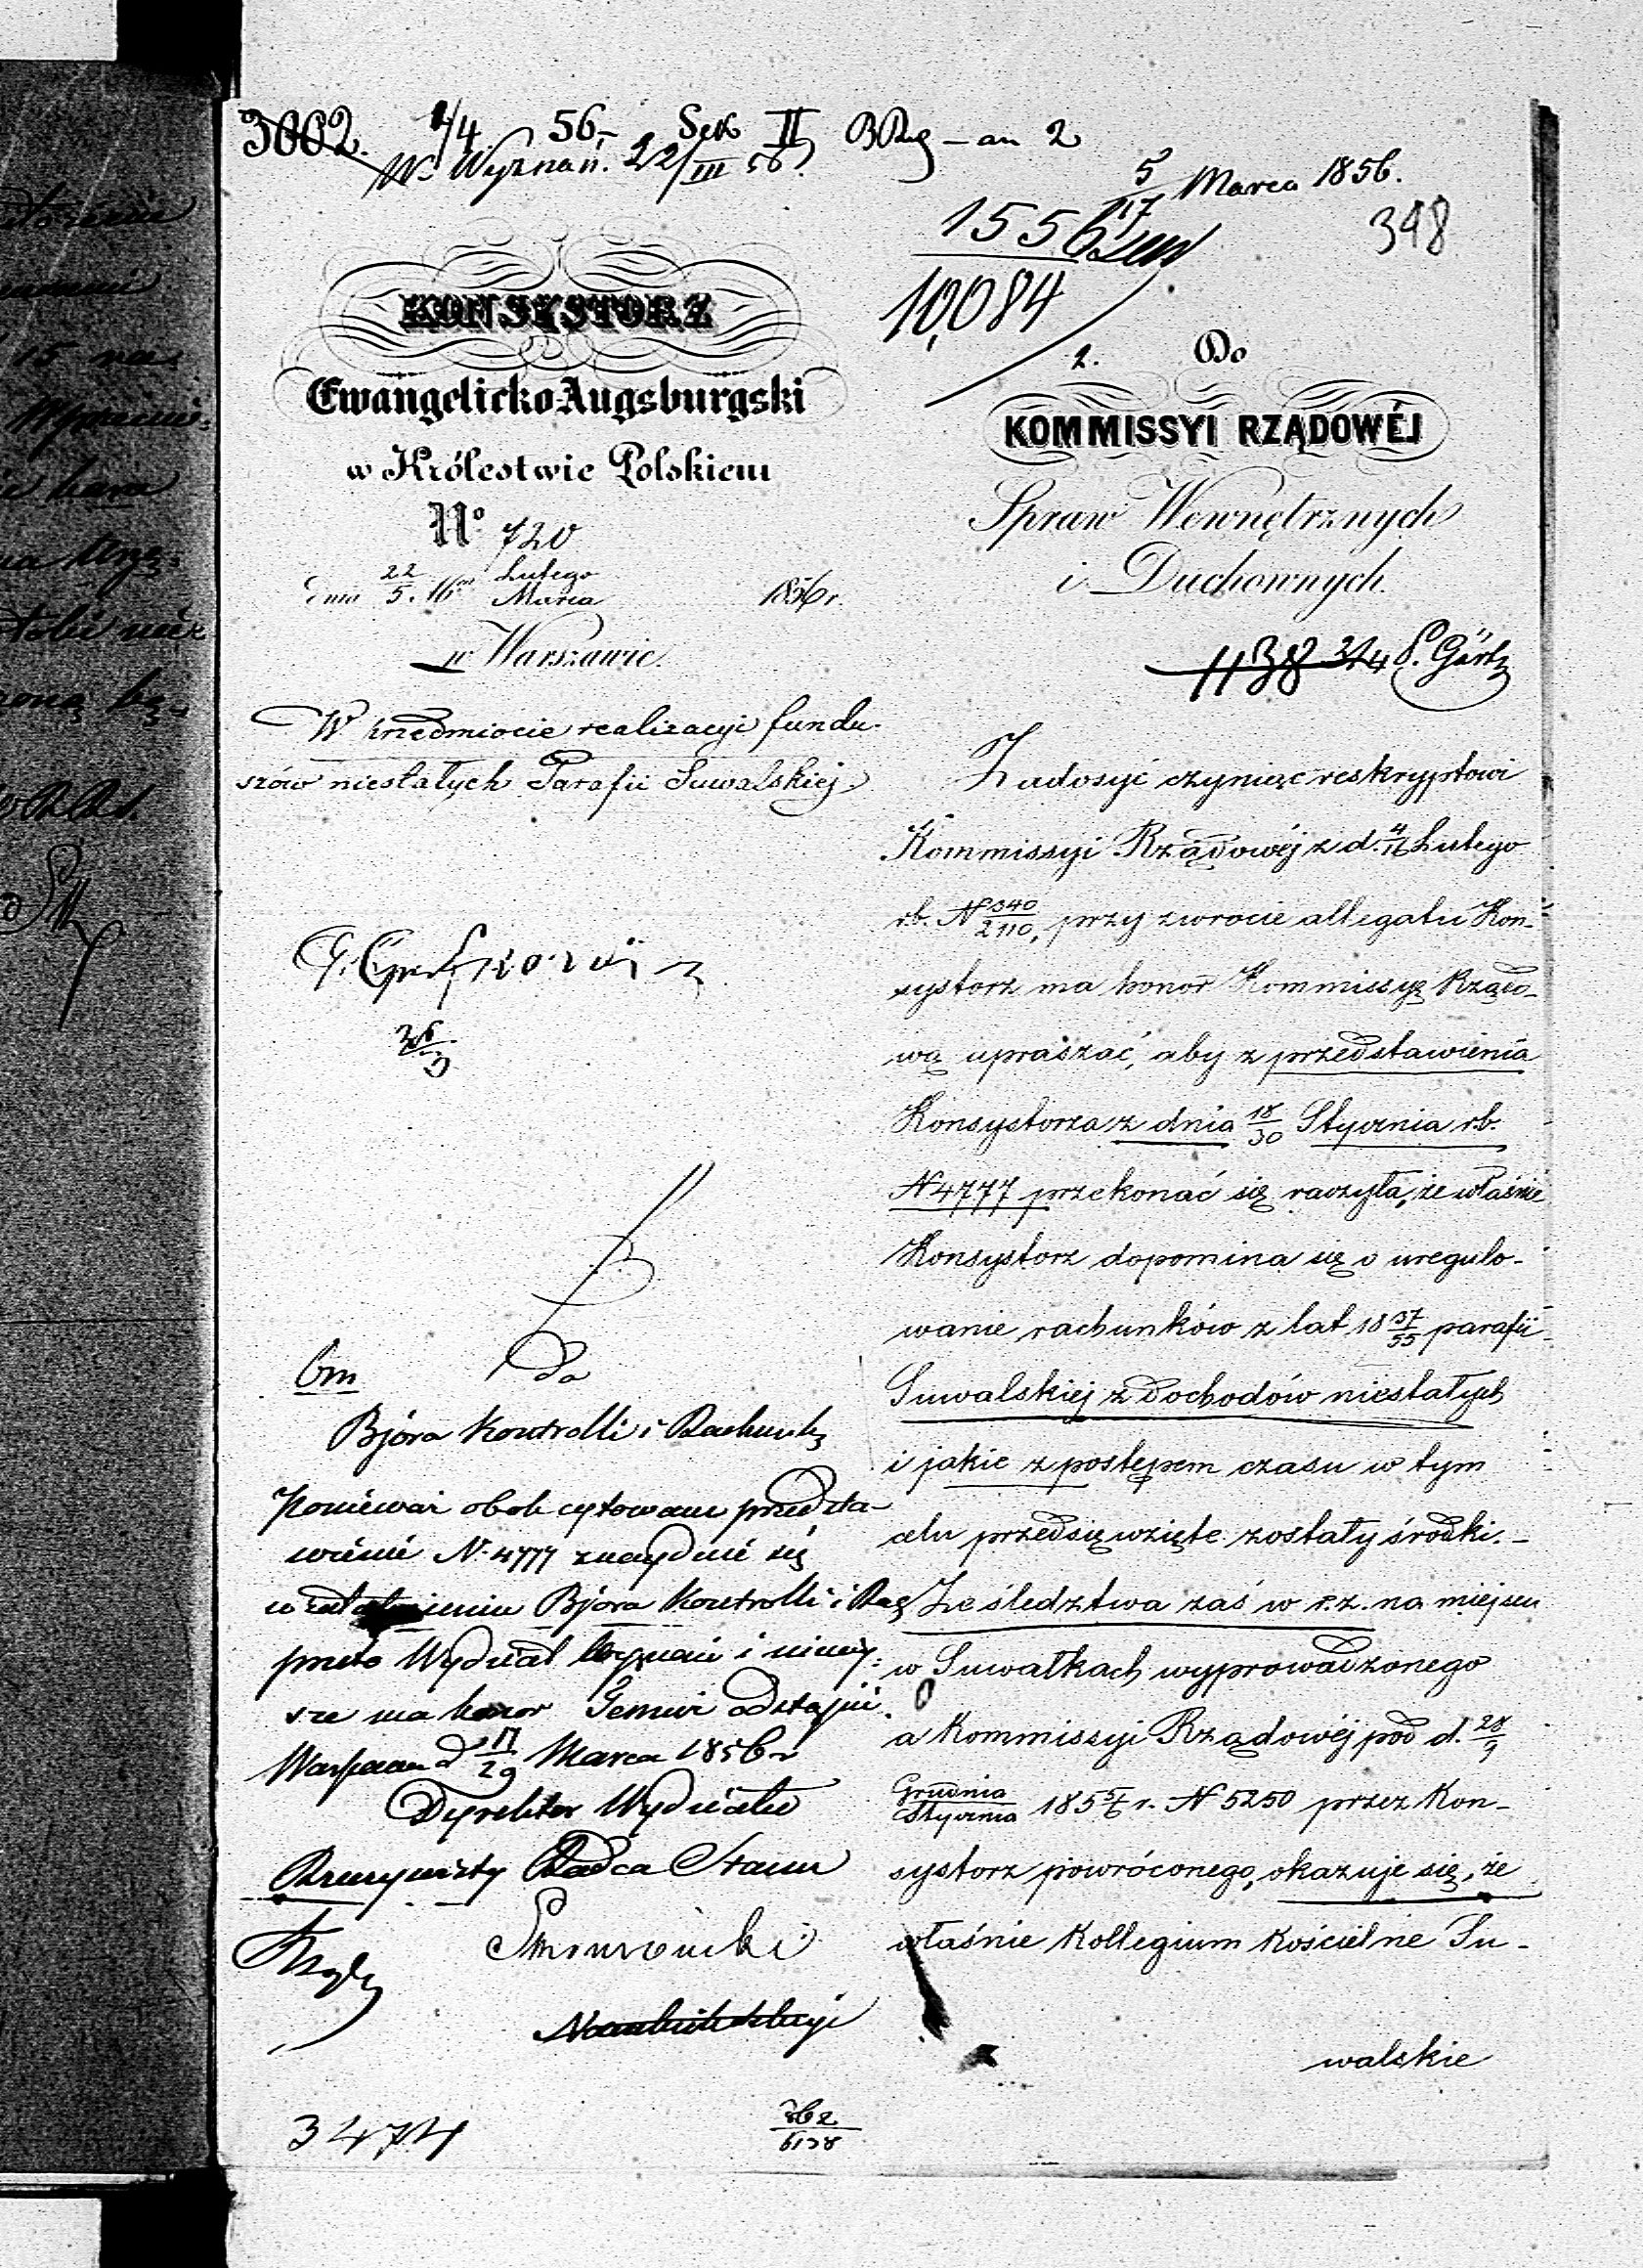 3002. 1/4 56 – Sek II
W. Wyznań. 22/III 56.
5/17 Marca 1856.
1556
348
10,084
KONSYSTORZ
Ewangelicko Augsburgski
w Królestwie Polskiem
No 720
dnia 22/5 Lutego/Marca 1856 r.
w Warszawie.
W przedmiocie realizacyi fundu-
szów niestałych Parafii Suwalskiej.
26/3
Do
Bjóra Kontrolli i Rachunk
Ponieważ obok cytowane przedsta-
wienie N. 4777 znajduje się
w załatwieniu Bjóra Kontrolli i Rach
przeto Wydział Wyznań i niniej-
sze ma honor Temuż odstąpić.
Warszawa d 17/29 Marca 1856 r
Dyrektor Wydziału
Rzeczywisty Radca Stanu
3474
362/6138
2. Do
KOMMISSYI RZĄDOWÉJ
Spraw Wewnętrznych
i Duchownych.
1138 324 P. Görtz
Zadosyć czyniąc reskryptowi
Kommissyi Rządowéj z d. 4/16 Lutego
rb. N 340/2110, przy zwrocie allegatu Kon-
systorz ma honor Kommissyą Rządo-
wą upraszać, aby z przedstawienia
Konsystorza z dnia 18/30 Stycznia rb.
N 4777 przekonać się raczyła, że właśnie
Konsystorz dopomina się o uregulo-
wanie rachunków z lat 18 37/55 parafii
Suwalskiej z dochodów niestałych
i jakie z postępem czasu w tym
celu przedsięwzięte zostały środki. –
Ze śledztwa zaś w r.z. na miejscu
w Suwałkach wyprowadzonego
a Kommissyi Rządowéj pod d. 28/9
Grudnia/Stycznia 185 5/6 r. N 5250 przez Kon-
systorz powróconego, okazuje się, że
właśnie Kollegium Kościelne Su-
walskie